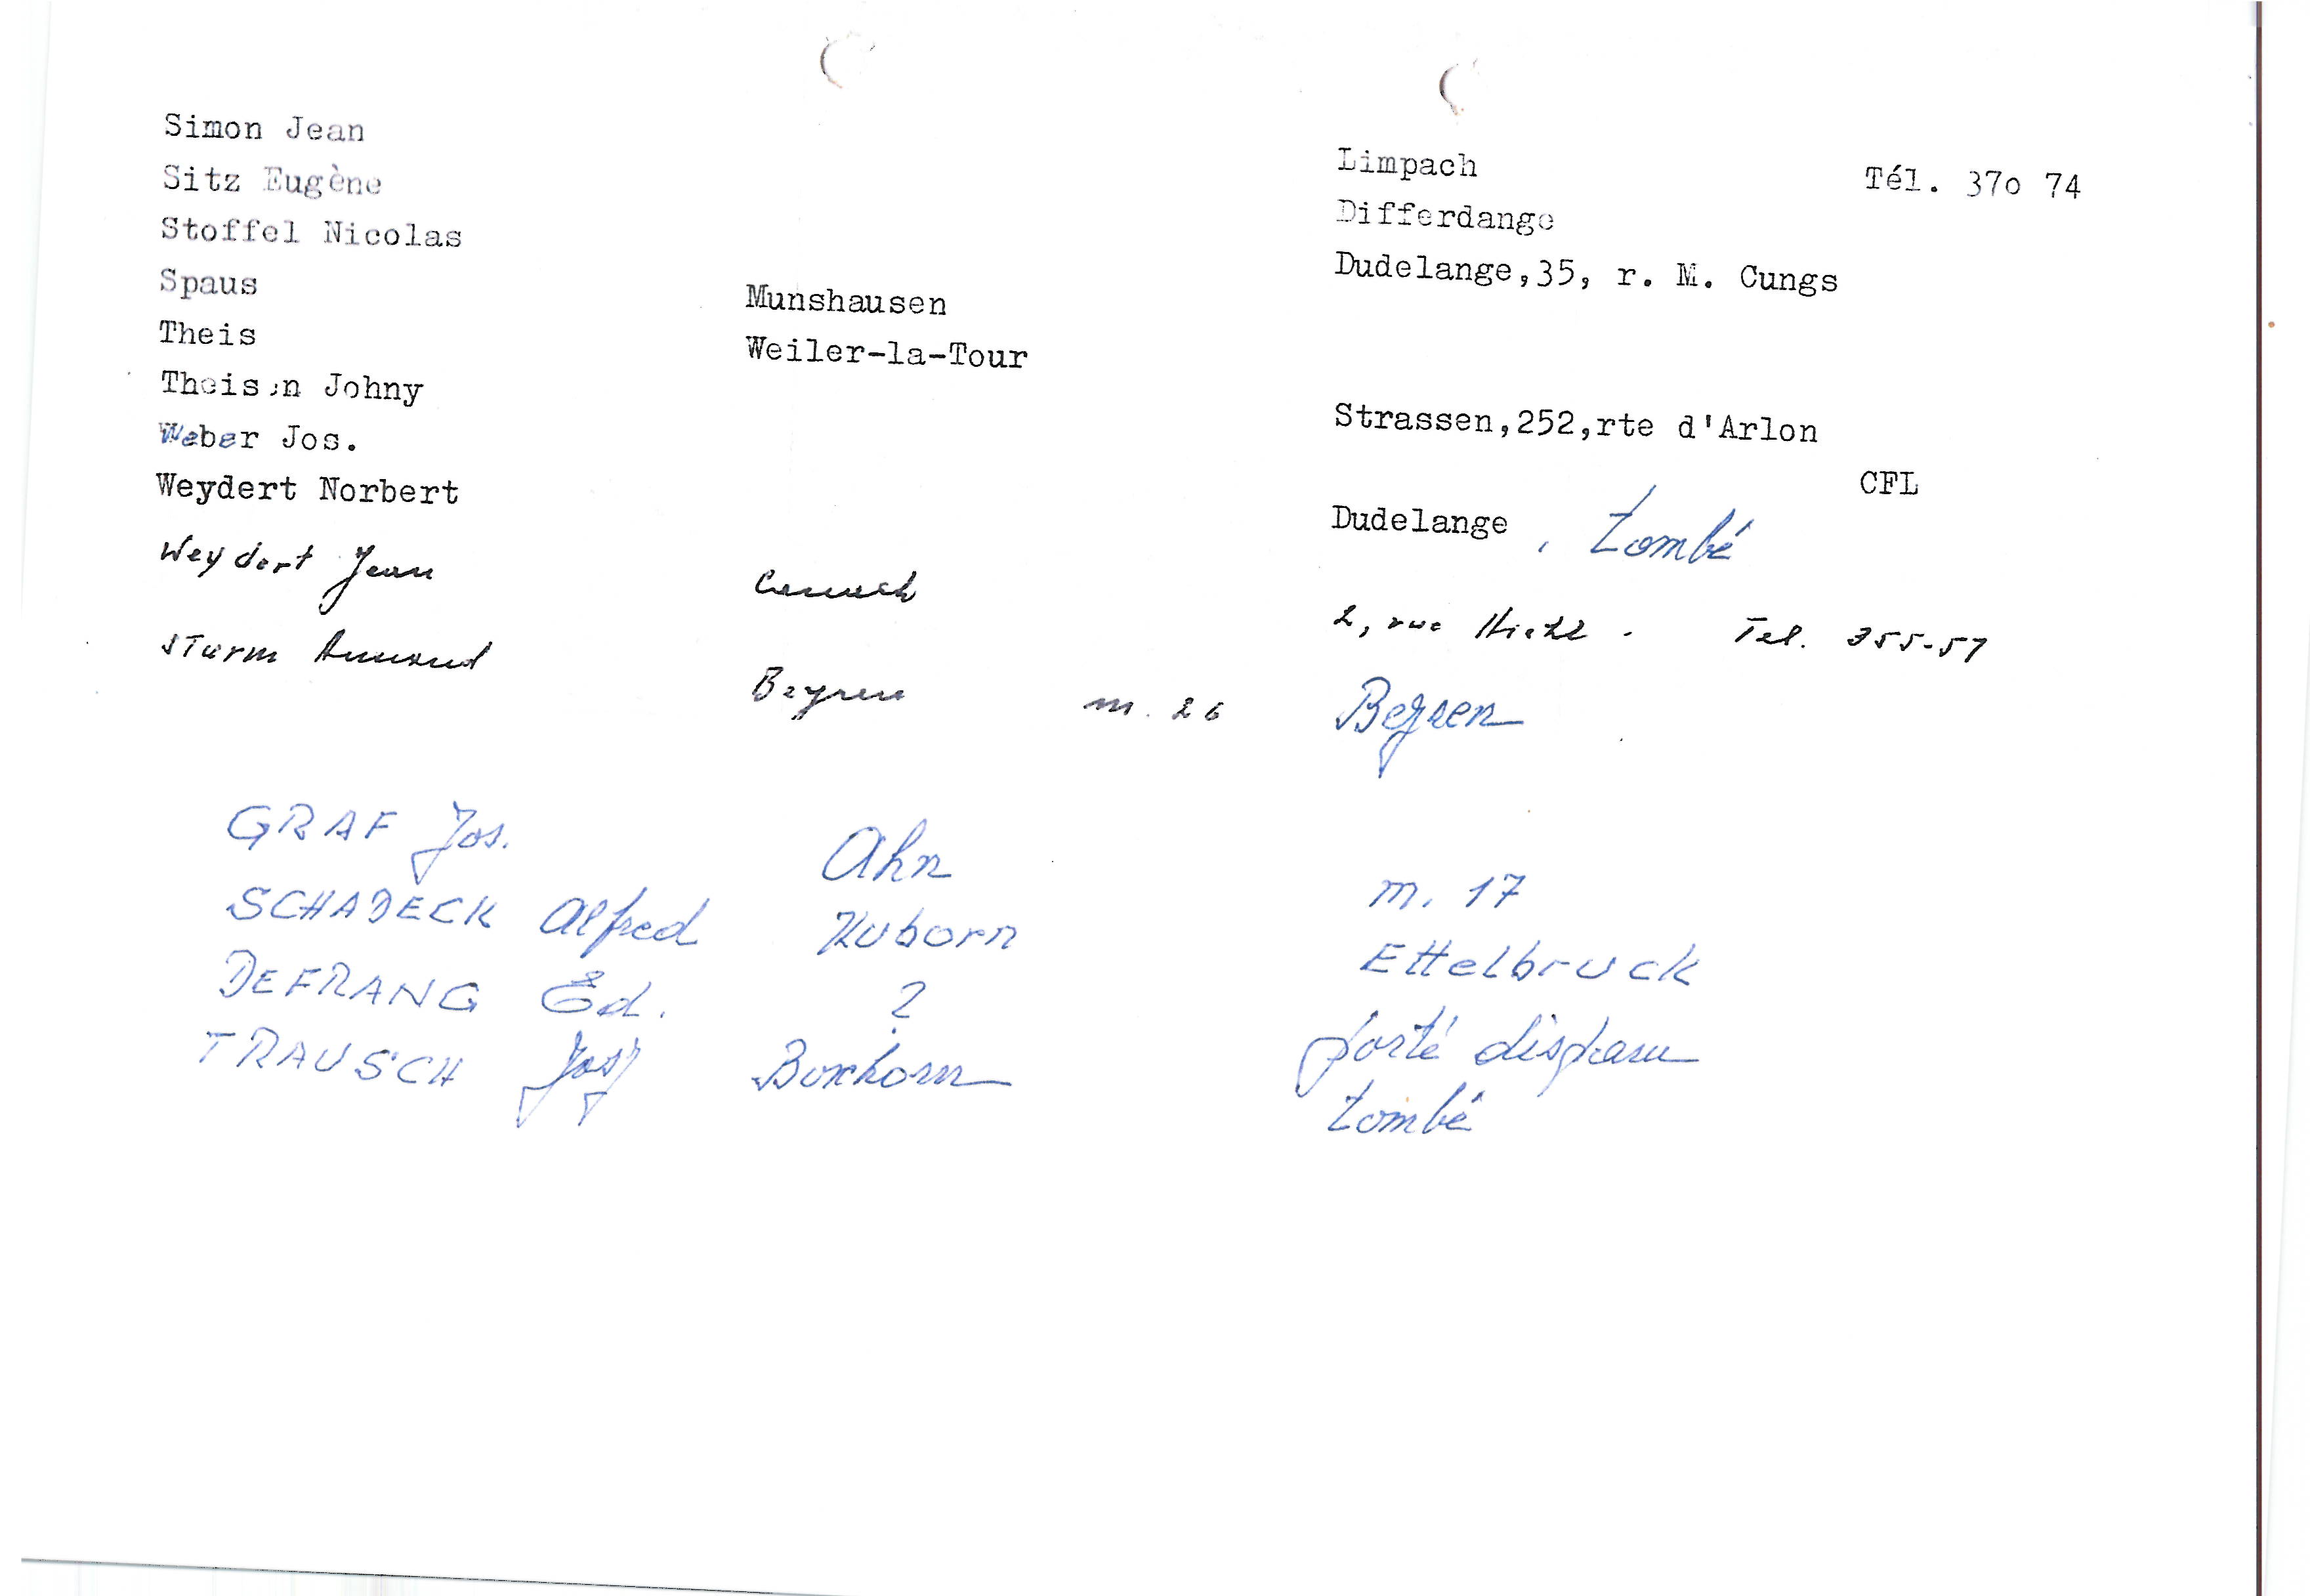 Simon Jean Limpach Tél. 37o 74
Sitz Eugène Differdange
Stoffel Nicolas Dudelange,35, r. M. Cungs
Spaus Munshausen
Theis Weiler-la-Tour
Theisen Johny Strassen,252,rte d'Arlon
Weber Jos. CFL
Weydert Norbert Dudelange , tombé
Weydert Jean 2, rue Tel. 355-57
Sturm Armand Beyren m. 26 Beyren
GRAF Jos. Ahn m. 17
SCHADECK Alfred Kuborn Ettelbruck
DEFRANG Ed. ? porté disparu
TRAUSCH Josy Boxhorn tombé